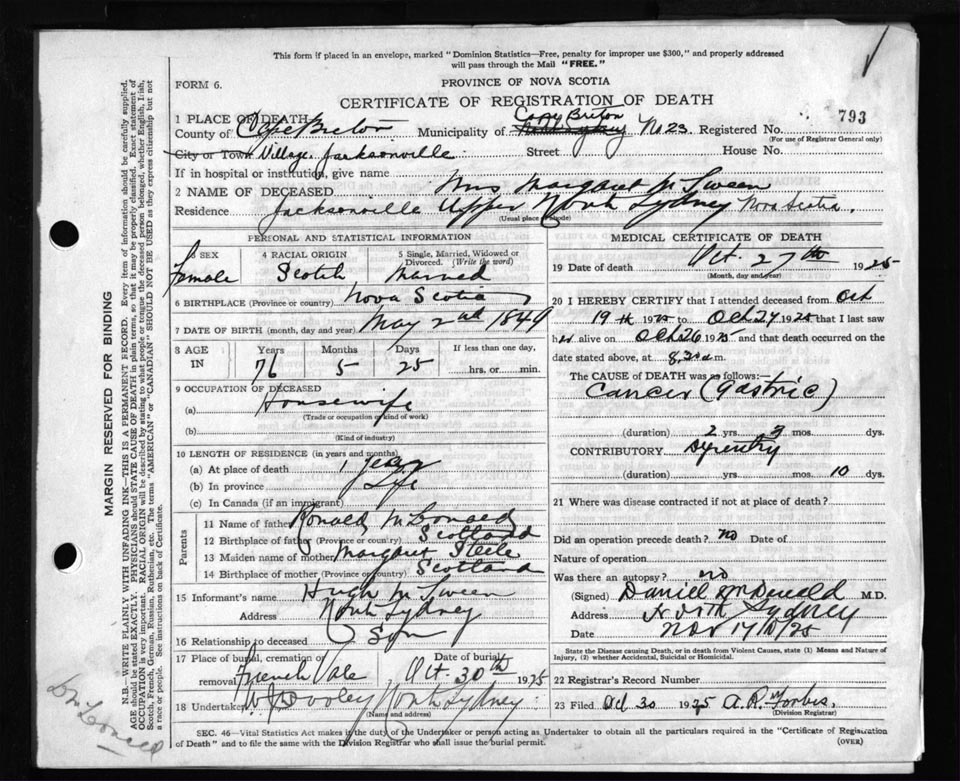 This form if placed in an envelope, marked "Dominion Statistics—Free, penalty for improper use $300," and properly addressed
will pass through the Mail "FREE."
FORM 6.
PROVINCE OF NOVA SCOTIA
CERTIFICATE OF REGISTRATION OF DEATH
1 PLACE OF DEATH
County of Cape Breton Municipality of Cape Breton No 23 Registered No. 793
(For use of Registrar General only)
City or Town Village Jacksonville Street House No.
If in hospital or institution, give name
2 NAME OF DECEASED Mrs Margaret McSween
Residence Jacksonville Upper North Sydney Nova Scotia.
(Usual place of abode)
PERSONAL AND STATISTICAL INFORMATION
3 SEX Female
4 RACIAL ORIGIN Scotch
5 Single, Married, Widowed or Divorced. (Write the word) Married
6 BIRTHPLACE (Province or country) Nova Scotia
7 DATE OF BIRTH (month, day and year) May 2nd 1849
8 AGE IN Years 76 Months 5 Days 25 If less than one day, hrs. or min.
9 OCCUPATION OF DECEASED
(a) Housewife
(Trade or occupation or kind of work)
(b)
(Kind of industry)
10 LENGTH OF RESIDENCE (in years and months)
(a) At place of death 1 year
(b) In province Life
(c) In Canada (if an immigrant)
Parents
11 Name of father Ronald McDonald
12 Birthplace of father (Province or country) Scotland
13 Maiden name of mother Margaret Steele
14 Birthplace of mother (Province or country) Scotland
15 Informant's name Hugh McSween
Address North Sydney
16 Relationship to deceased Son
17 Place of burial, cremation or removal French Vale
Date of burial Oct. 30th 1925
18 Undertaker W. J. Dooley North Sydney
(Name and address)
MEDICAL CERTIFICATE OF DEATH
19 Date of death Oct. 27th 1925
(Month, day and year)
20 I HEREBY CERTIFY that I attended deceased from Oct
19th 1925 to Oct 27 1925 that I last saw
her alive on Oct 26 1925 and that death occurred on the
date stated above, at 8.30 a m.
The CAUSE OF DEATH was as follows:
Cancer (Gastric)
(duration) 2 yrs. 3 mos. dys.
CONTRIBUTORY Dysentry
(duration) yrs. mos. 10 dys.
21 Where was disease contracted if not at place of death?
Did an operation precede death? no Date of
Nature of operation
Was there an autopsy? no
(Signed) Daniel McDonald M.D.
Address North Sydney
Date Nov 17/10/25
State the Disease causing Death, or in death from Violent Causes, state (1) Means and Nature of
Injury, (2) whether Accidental, Suicidal or Homicidal.
22 Registrar's Record Number
23 Filed Oct 30 1925 A. R. Forbes
(Division Registrar)
SEC. 46—Vital Statistics Act makes it the duty of the Undertaker or person acting as Undertaker to obtain all the particulars required in the "Certificate of Registration
of Death" and to file the same with the Division Registrar who shall issue the burial permit.
(OVER)
MARGIN RESERVED FOR BINDING
N.B.—WRITE PLAINLY WITH UNFADING INK—THIS IS A PERMANENT RECORD. Every item of information should be carefully supplied.
AGE should be stated EXACTLY. PHYSICIANS should STATE CAUSE OF DEATH in plain terms, so that it may be properly classified. Exact statement of
OCCUPATION is very important. RACIAL ORIGIN will be described by stating to what people or tongue the deceased person belonged, whether English, Irish,
Scotch, French, German, Russian, Ruthenian, etc. The terms "AMERICAN" or "CANADIAN" SHOULD NOT BE USED as they express citizenship but not
a race or people. See instructions on back of Certificate.